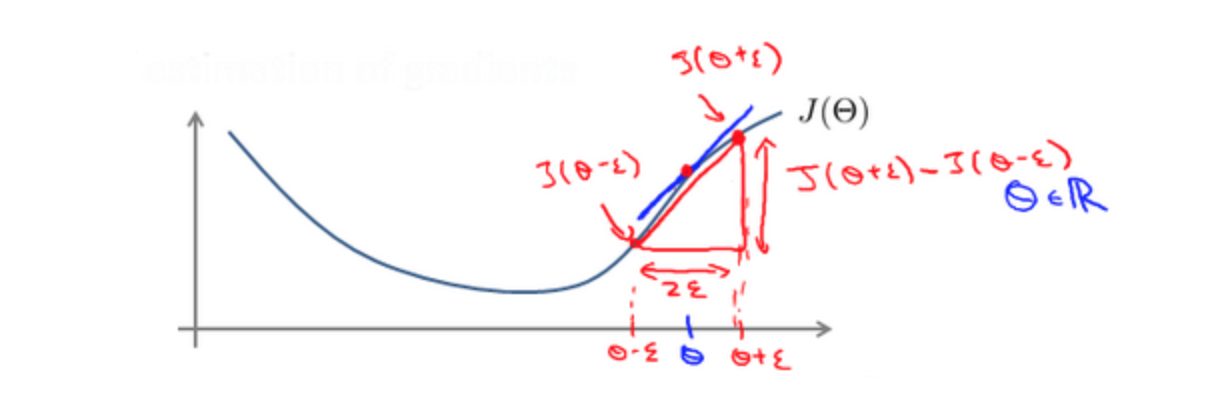 estimation of gradients
J(θ+ε)
J(Θ)
J(θ-ε)
J(θ+ε)-J(θ-ε)
θ∈ℝ
2ε
θ-ε θ θ+ε